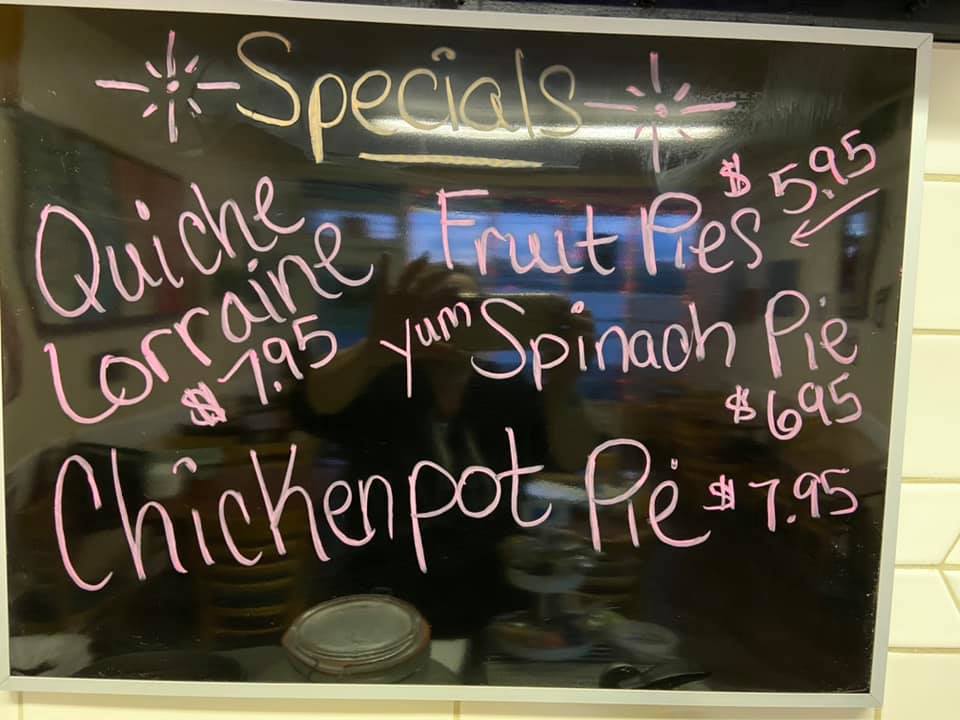 Specials
Quiche
Lorraine
$7.95
Fruit Pies $5.95
yum Spinach Pie
$6.95
Chickenpot Pie $7.95